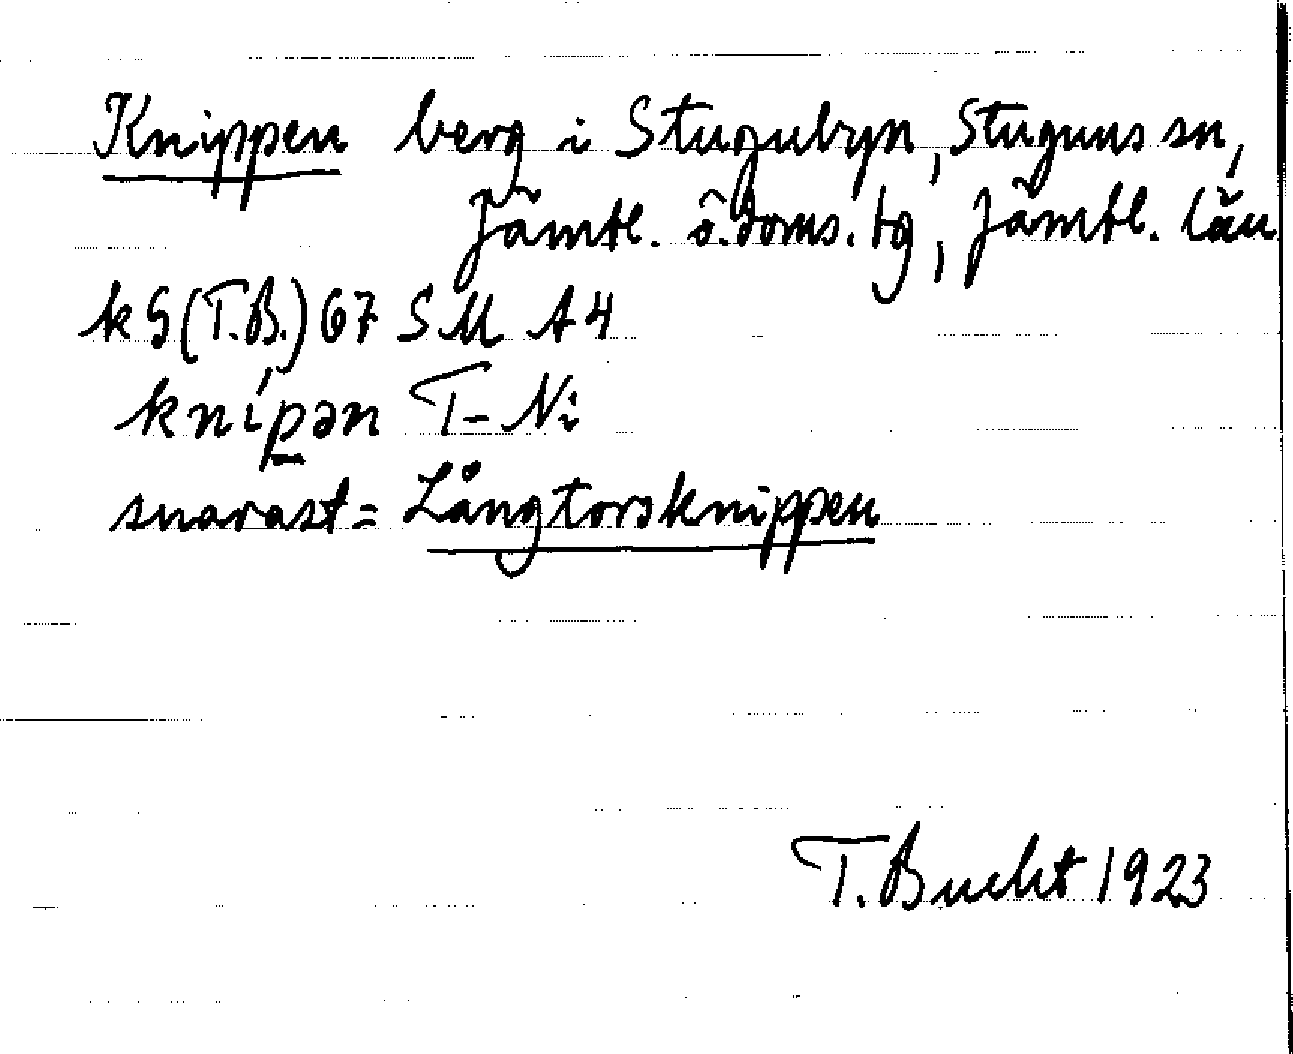 Knippen berg i Stugubyn, Stuguns sn,
Jämtl. ö. doms. tg, Jämtl. län
kG (T.B.) 67 SM A4
knípən T-Ni
snarast = Långtorsknippen
T. Bucht 1923